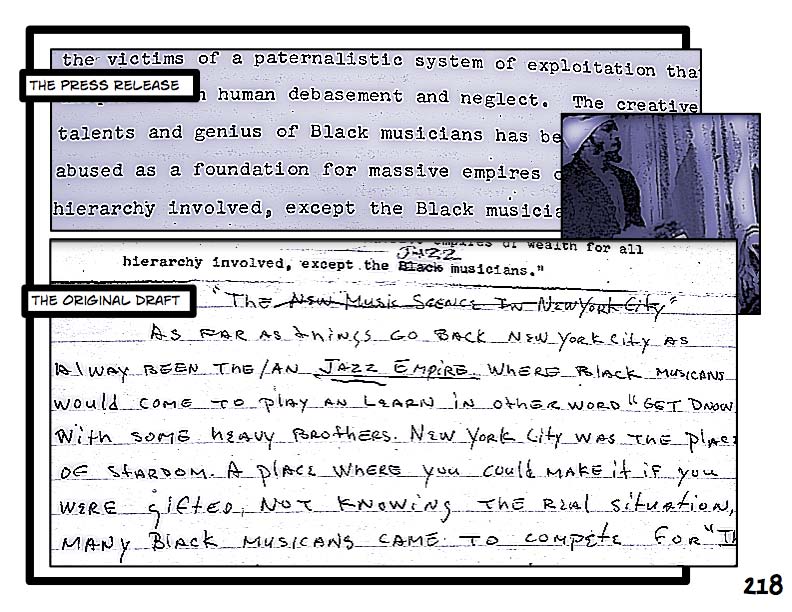 the victims of a paternalistic system of exploitation tha
THE PRESS RELEASE
human debasement and neglect. The creative
talents and genius of Black musicians has be
abused as a foundation for massive empires o
hierarchy involved, except the Black musicia
empires of wealth for all
JAZZ
hierarchy involved, except the Black musicians."
THE ORIGINAL DRAFT
"The New Music Scence In New York City"
As FAR AS things GO BACK NEW York City AS
AlWAY BEEN THE/AN JAZZ EMPIRE. WHERE BlACK MUSICANS
would COME TO plAY AN LEARN IN other WORD "GET DNOW
With SOME hEAVY BROTHERS. NEW York City WAS THE plACE
OF StARDOM. A plACE WHERE you could MAKE it if you
WERE giFtED, NOT KNOWINg THE REAl situation,
MANy BlACK MUSICANS CAME TO COMpEtE FOR "Th
218